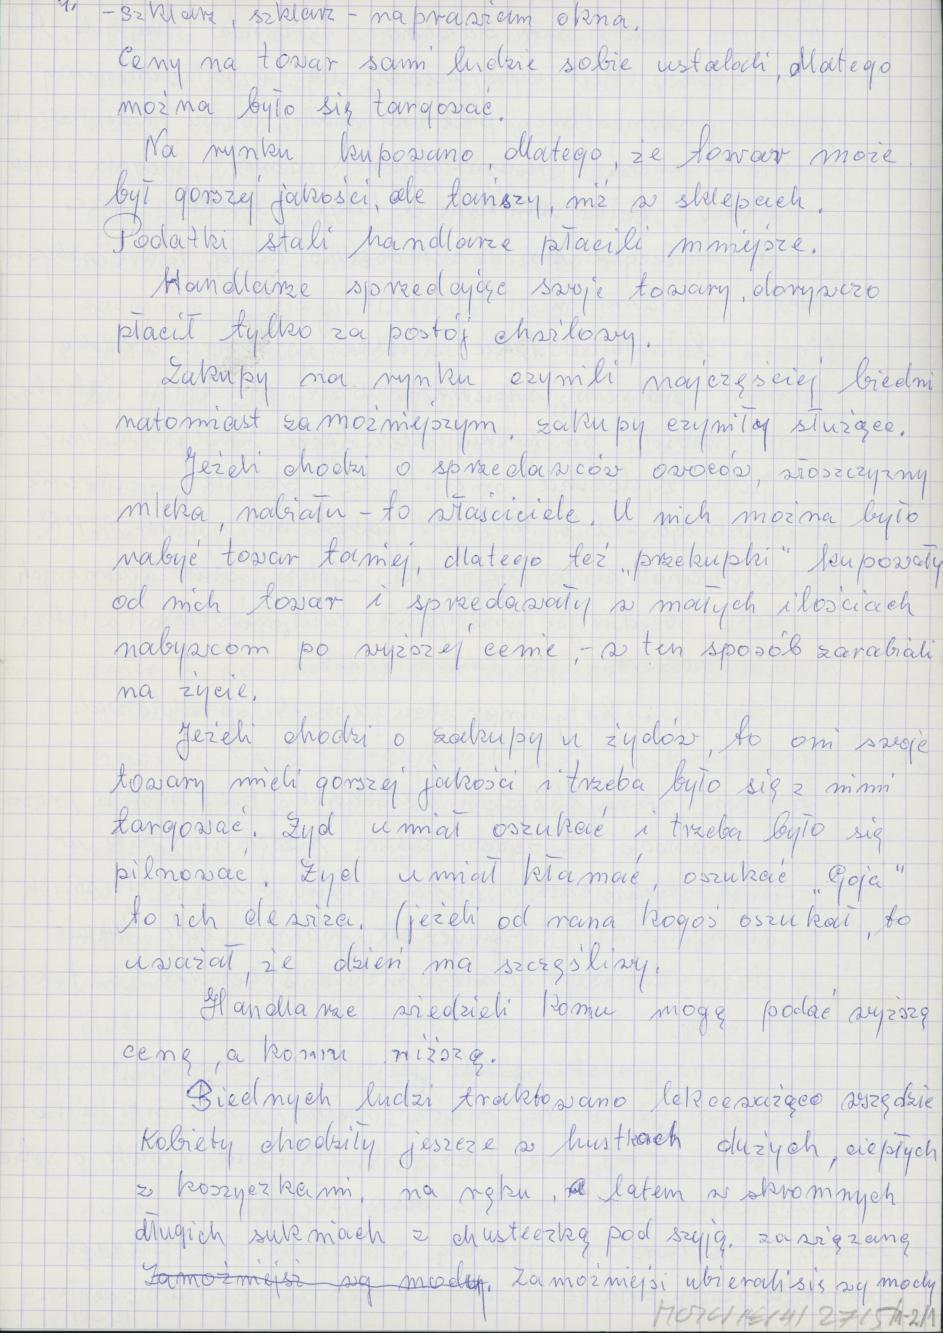 - szklarz, szklarz - naprawiam okna.
Ceny na towar sami ludzie sobie ustalali, dlatego
można było się targować.
Na rynku kupowano, dlatego, że towar może
był gorszej jakości, ale tańszy, niż w sklepach.
Podatki stali handlarze płacili mniejsze.
Handlarze sprzedający swoje towary, dorywczo
płacił tylko za postój chwilowy.
Zakupy na rynku czynili najczęściej biedni
natomiast zamożniejszym, zakupy czyniły służące.
Jeżeli chodzi o sprzedawców owoców, włoszczyzny
mleka, nabiału - to właściciele. U nich można było
nabyć towar taniej, dlatego też „przekupki" kupowały
od nich towar i sprzedawały w małych ilościach
nabywcom po wyższej cenie, - w ten sposób zarabiali
na życie.
Jeżeli chodzi o zakupy u żydów, to oni swoje
towary mieli gorszej jakości i trzeba było się z nimi
targować. Żyd umiał oszukać i trzeba było się
pilnować. Żyd umiał kłamać, oszukać „Goja"
to ich dewiza. (jeżeli od rana kogoś oszukał, to
uważał, że dzień ma szczęśliwy.
Handlarze wiedzieli komu mogą podać wyższą
cenę, a komu niższą.
Biednych ludzi traktowano lekceważąco wszędzie
Kobiety chodziły jeszcze w hustkach dużych, ciepłych
z koszyczkami, na ręku, a latem w skromnych
długich sukniach z chusteczką pod szyją. zawiązaną
Zamożniejsi wg mody. Zamożniejsi ubierali się wg mody